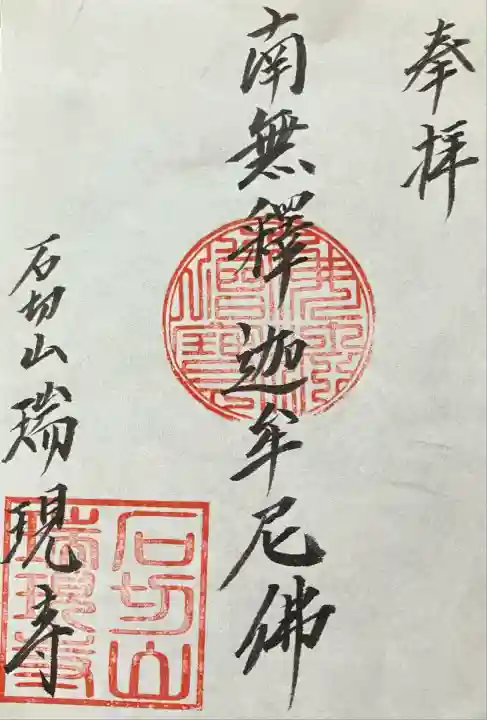 奉拝
南無釋迦牟尼佛
石切山瑞現寺
石切山
瑞現寺